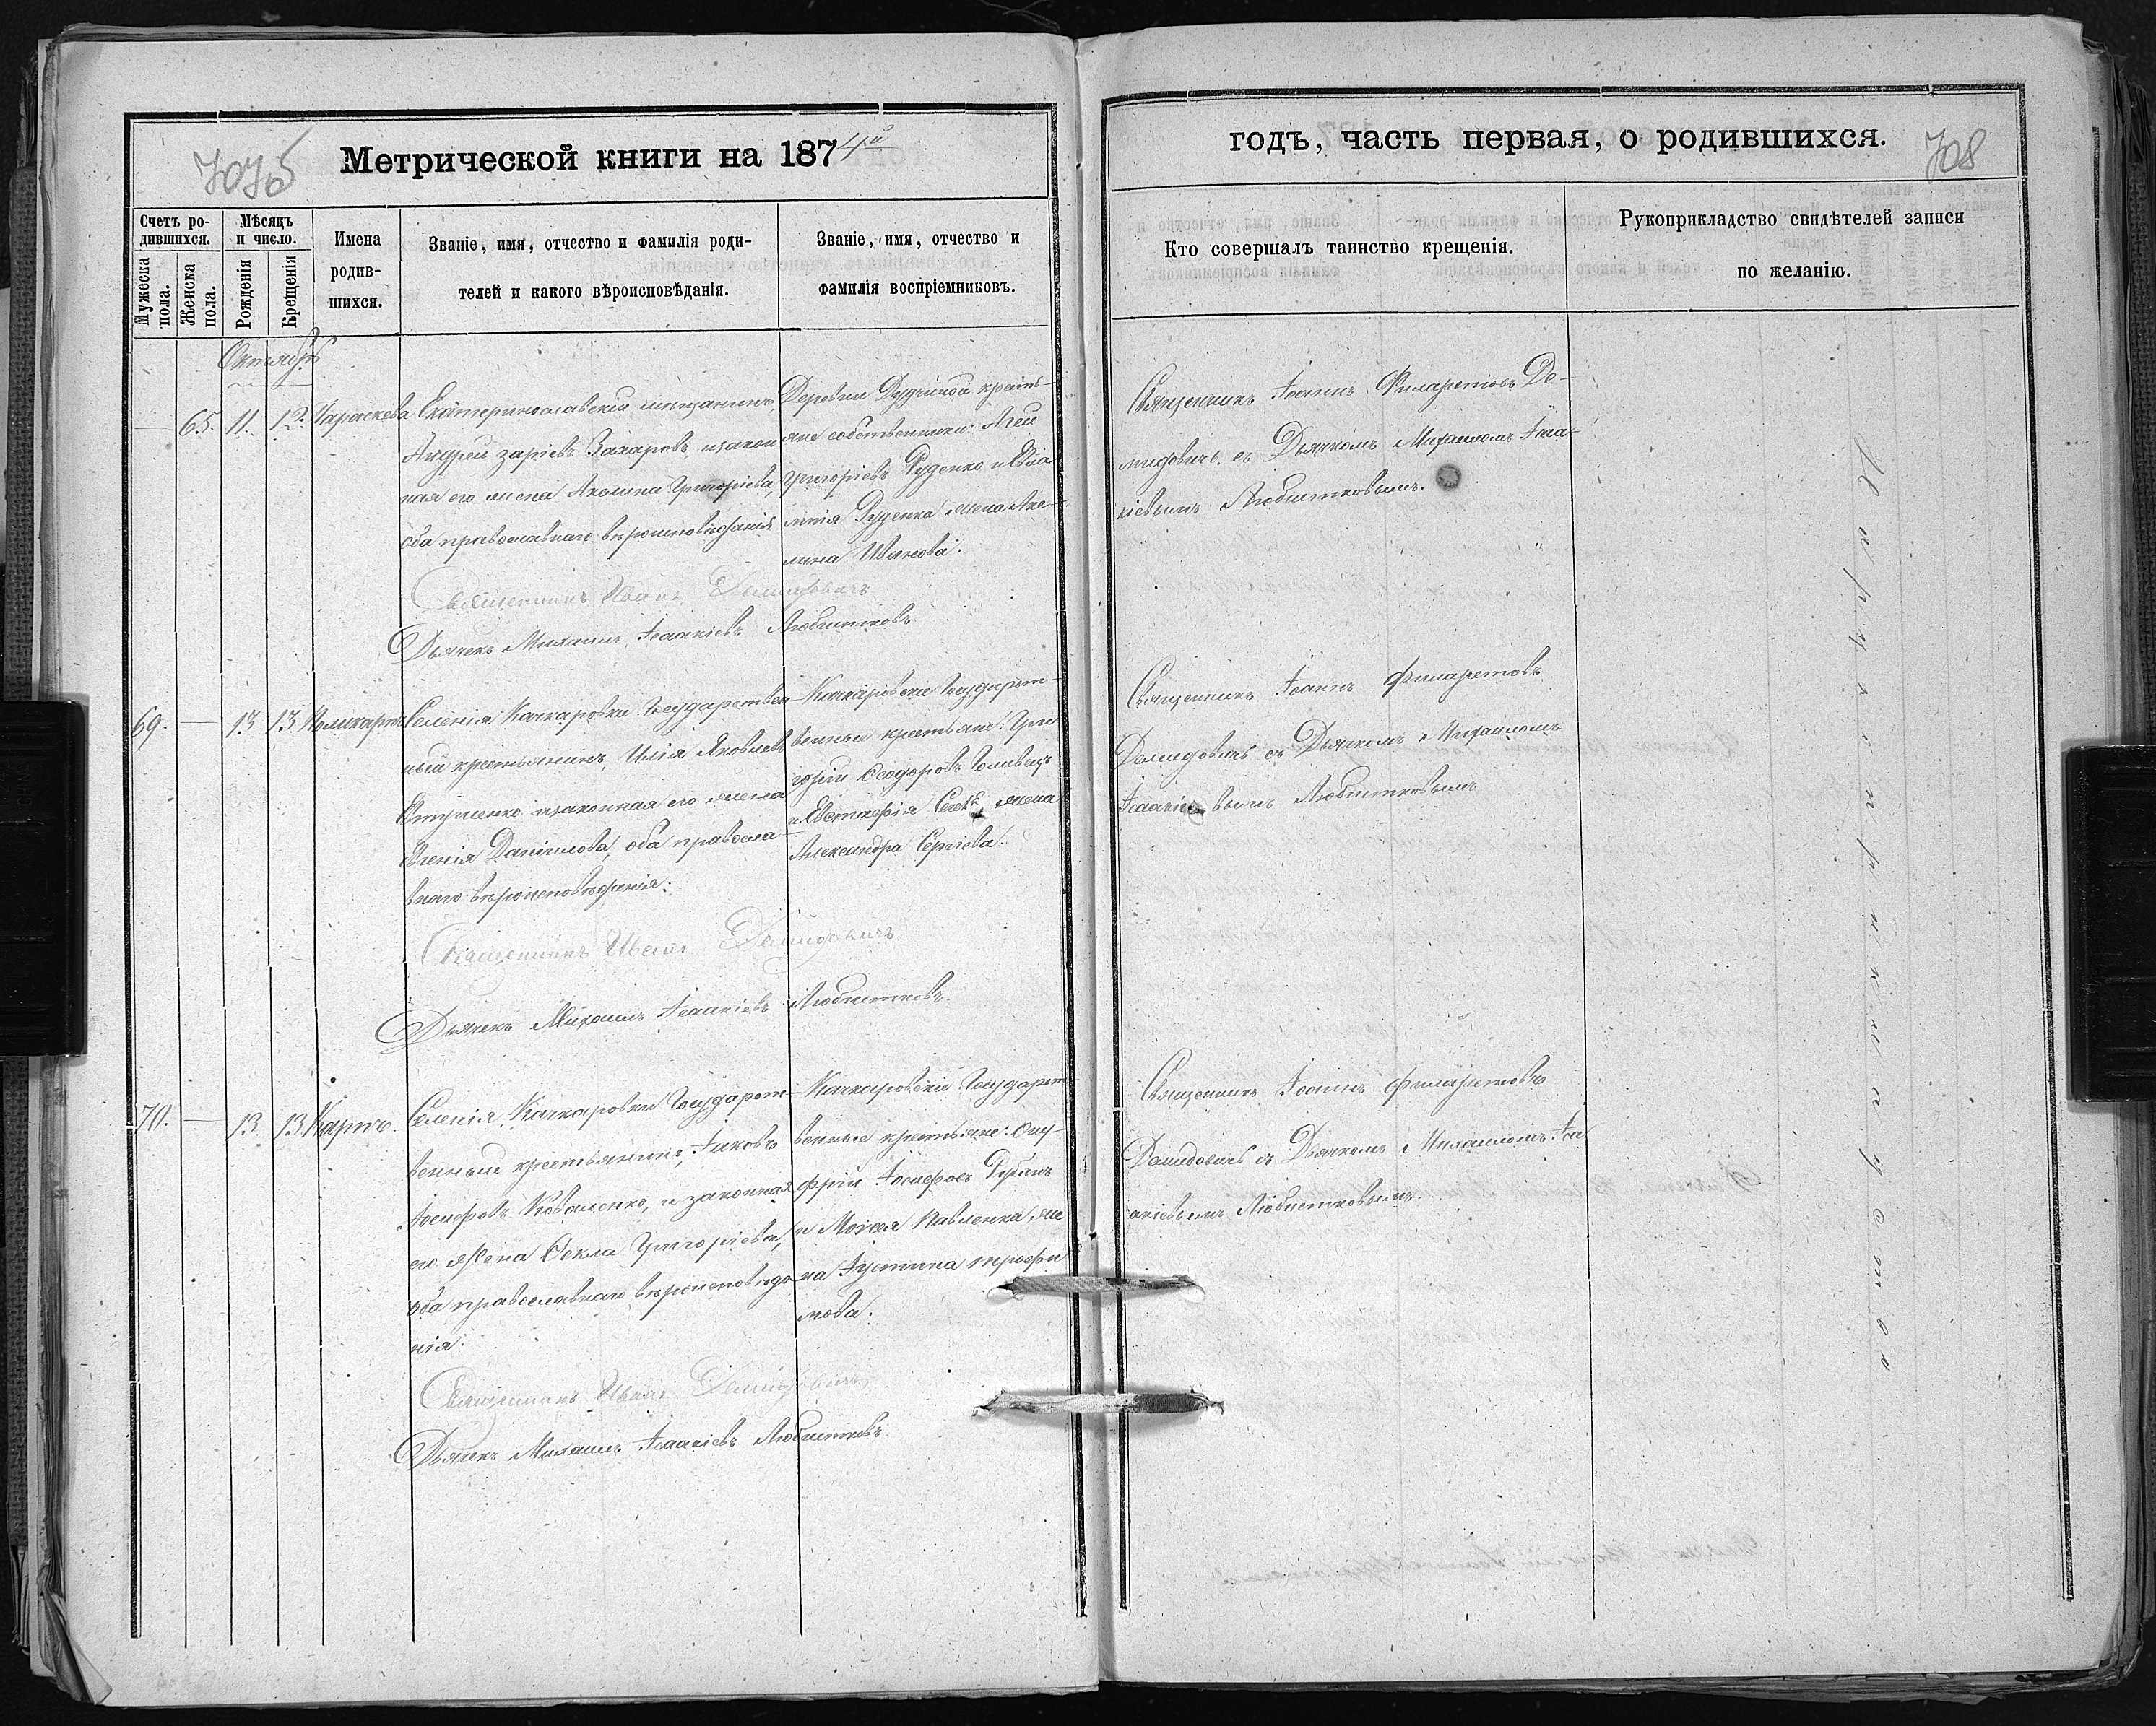 707б
Метрической книги на 1874й
Счетъ ро-
дившихся.
Мужеска
пола.
Женска
пола.
Мѣсяцъ
и число.
Рожденія
Крещенія
Имена
родив-
шихся.
Званіе, имя, отчество и фамилія роди-
телей и какого вѣроисповѣданія.
Званіе, имя, отчество и
фамилія воспріемниковъ.
годъ, часть первая, о родившихся.
708
Кто совершалъ таинство крещенія.
Рукоприкладство свидѣтелей записи
по желанію.
Октябрь
65. 11. 12. Параскева
Екатеринославскій мѣщанинъ,
Андрей Захаровъ, и закон
ная его жена Акилина Григоріева,
оба православнаго вѣроисповѣданія
Деревни Дудчиной крестъ-
яне собственники:
Григоріевъ Руденко и
Руденка жена Аке-
лина Иванова.
Священникъ Іоаннъ Филаретовъ Де-
мидовичъ, съ Дьячкомъ Михаиломъ Ісаа-
кіевымъ Любистковымъ.
Священникъ Иванъ Демидовичъ
Дьячекъ Михаилъ Ісаакіевъ Любистковъ
69. 13 13. Поликарпъ
Селенія Качкаровки Государствен-
ный крестьянинъ, Илія Яковлевъ
Евтушенко и законная его жена
Евгенія Даніилова, оба правосла-
внаго вѣроисповѣданія.
Качкаровскіе Государст-
венные крестьяне: Гри
горій Ѳеодоровъ Голивецъ
и Евстафія жена
Александра Сергіева.
Священникъ Іоаннъ Филаретовъ
Демидовичъ съ Дьячкомъ Михаиломъ
Ісаакіевымъ Любистковымъ
Священникъ Иванъ Демидовичъ
Дьячекъ Михаилъ Ісаакіевъ Любистковъ
70. 13. 13. Карпъ.
Селенія Качкаровки Государст-
венный крестьянинъ, Іаковъ
Іосифовъ Коваленко, и законная
его жена Ѳекла Григоріева,
оба православнаго вѣроисповѣда-
нія.
Качкаровскіе Государст-
венные крестьяне: Ону-
фрій Іосифовъ Рубанъ
и Моисея Павленка же
на Іустина Трофи
мова.
Священникъ Іоаннъ Филаретовъ
Демидовичъ съ Дьячкомъ Михаиломъ Іса
акіевымъ Любистковымъ.
Священникъ Иванъ Демидовичъ
Дьячекъ Михаилъ Ісаакіевъ Любистковъ